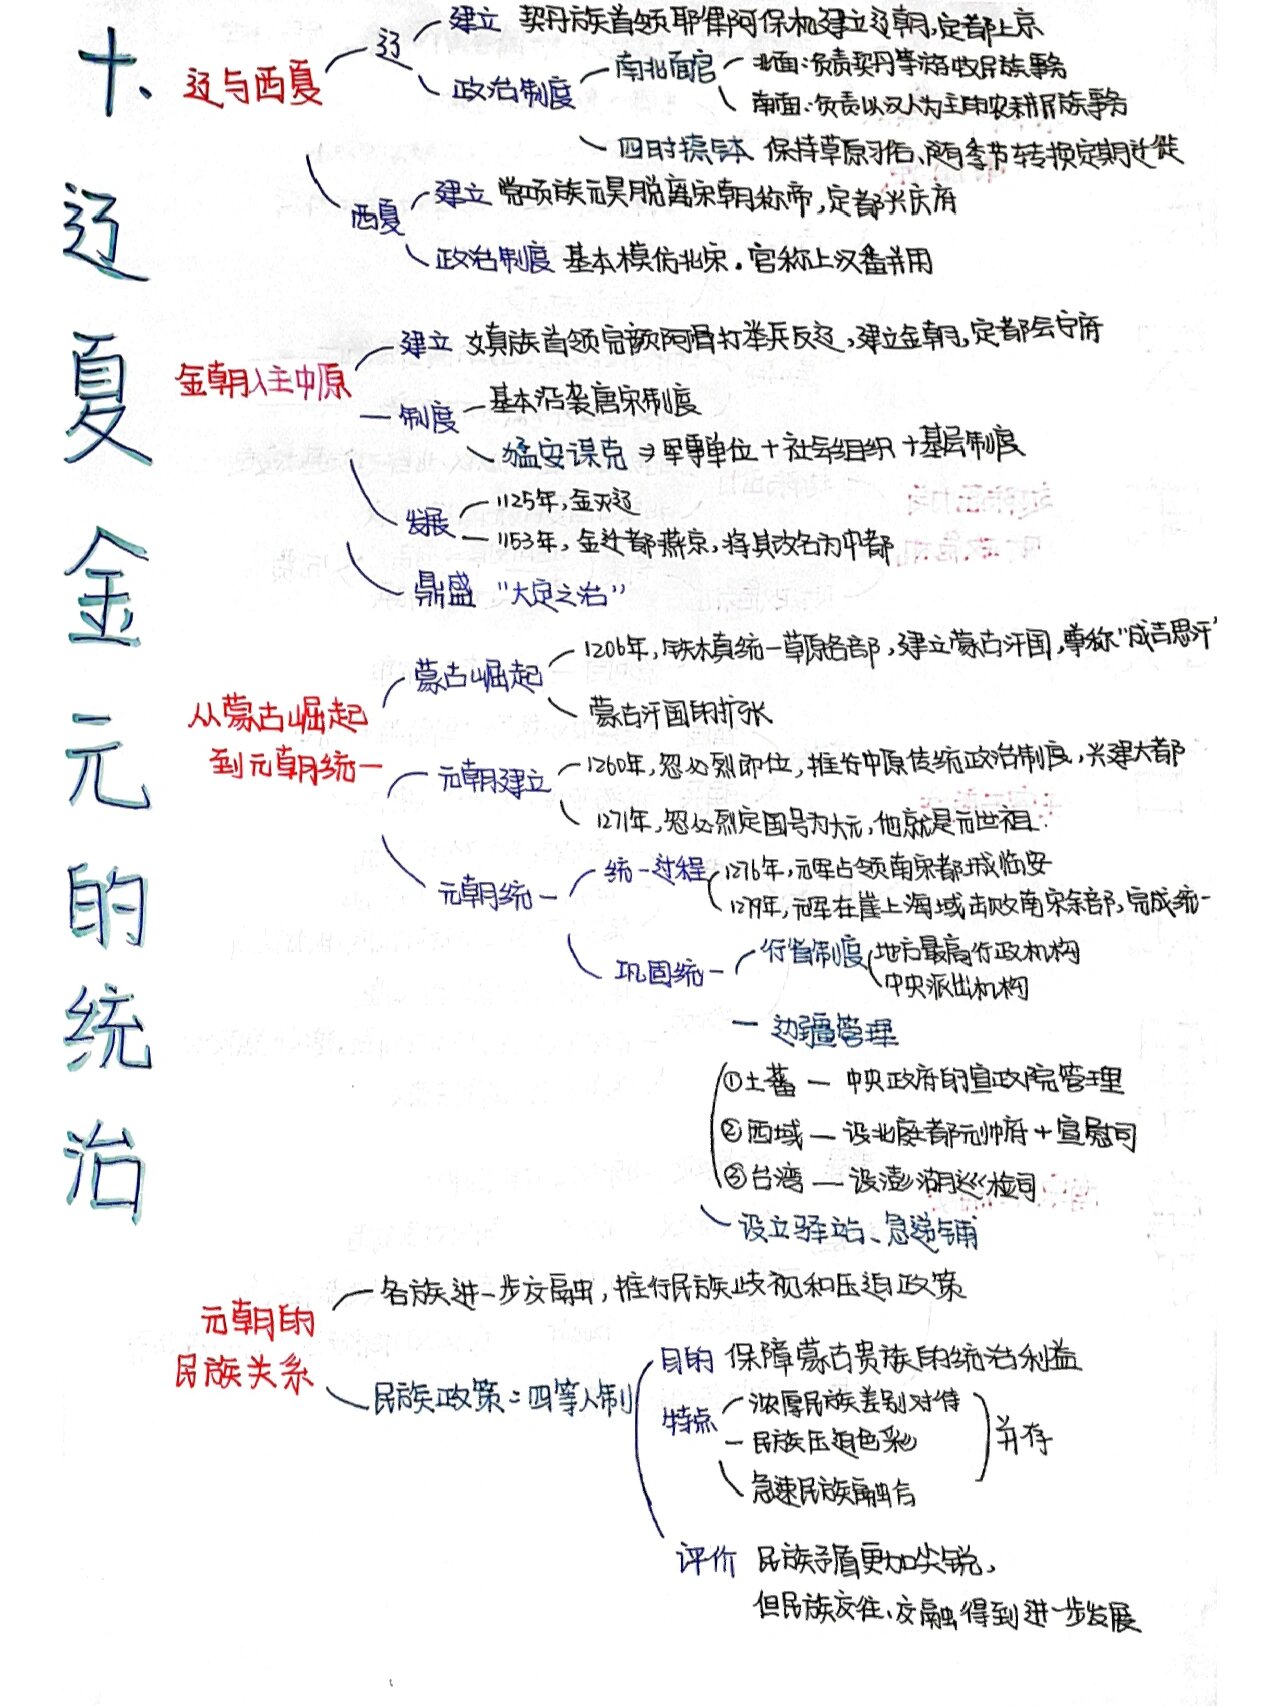 十、辽夏金元的统治
辽与西夏
辽
建立 契丹族首领耶律阿保机建立辽朝,定都上京
政治制度
南北面官
北面:负责契丹等游牧民族事务
南面:负责以汉人为主的农耕民族事务
四时捺钵 保持草原习俗、随季节转换定期迁徙
西夏
建立 党项族元昊脱离宋朝称帝,定都兴庆府
政治制度 基本模仿北宋.官称上汉番并用
金朝入主中原
建立 女真族首领完颜阿骨打举兵反辽,建立金朝,定都会宁府
制度
基本沿袭唐宋制度
猛安谋克 → 军事单位+社会组织+基层制度
发展
1125年,金灭辽
1153年,金迁都燕京,将其改名为中都
鼎盛 “大定之治”
从蒙古崛起
到元朝统一
蒙古崛起
1206年,铁木真统一草原各部,建立蒙古汗国,尊称“成吉思汗”
蒙古汗国的扩张
元朝建立
1260年,忽必烈即位,推行中原传统政治制度,兴建大都
1271年,忽必烈定国号为大元,他就是元世祖.
元朝统一
统一过程
1276年,元军占领南宋都城临安
1279年,元军在崖上海域击败南宋余部,完成统一
巩固统一
行省制度
地方最高行政机构
中央派出机构
边疆管理
①土蕃 — 中央政府的宣政院管理
②西域 — 设北庭都元帅府+宣慰司
③台湾 — 设澎湖巡检司
设立驿站、急递铺
元朝的
民族关系
各族进一步交融,推行民族歧视和压迫政策
民族政策:四等人制
目的 保障蒙古贵族的统治利益
特点
浓厚民族差别对待
民族压迫色彩
急速民族融合
并存
评价 民族矛盾更加尖锐,
但民族交往、交融得到进一步发展